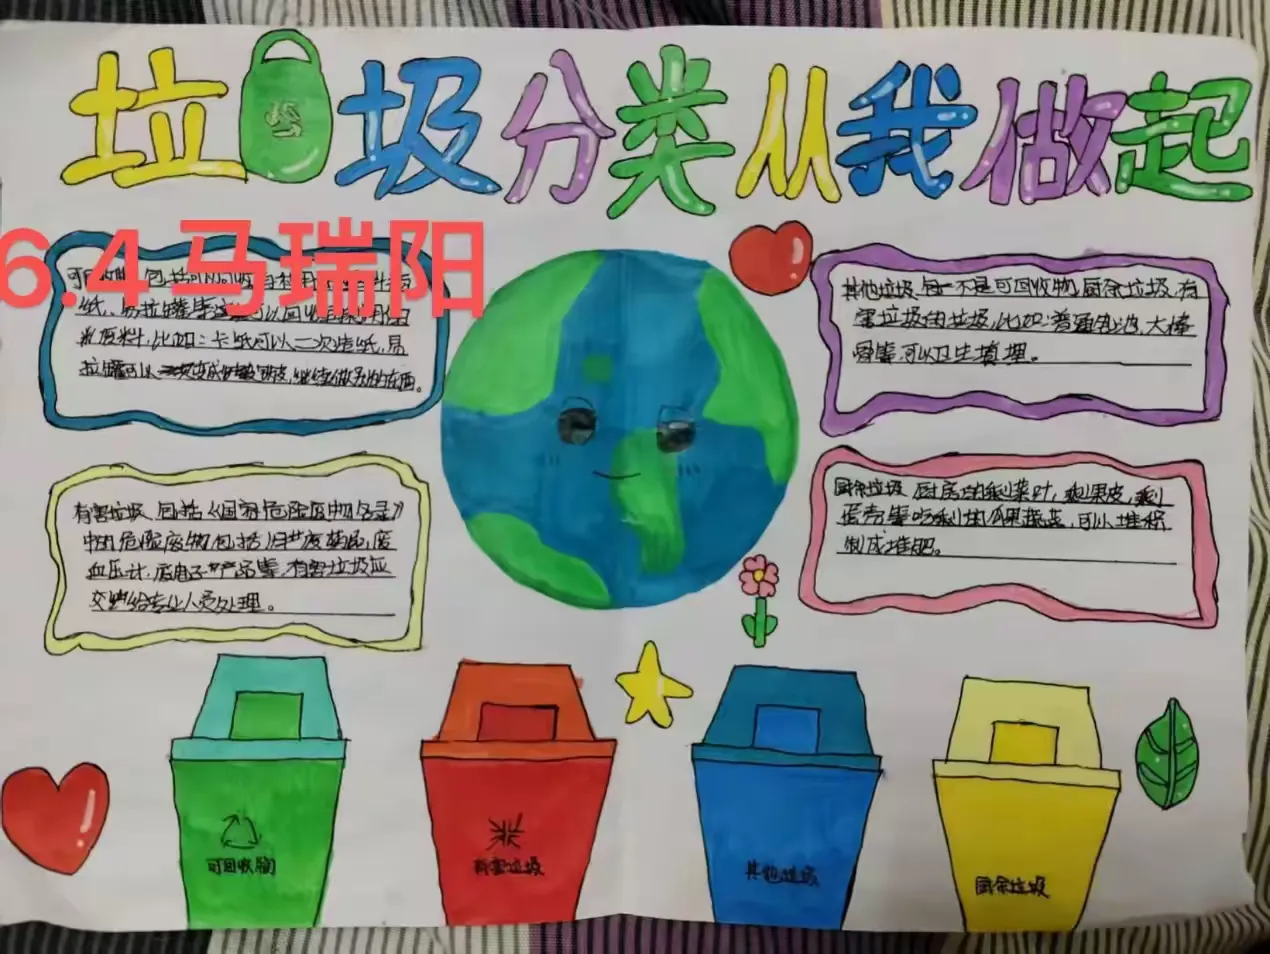 垃圾分类从我做起
6.4马瑞阳
可回收物 包括可以回收
纸、易拉罐等这 可以回收
米废料,比如:卡纸可以二次造纸,易
拉罐可以 继续做别的东西。
其他垃圾 每一不是可回收物,厨余垃圾,有
害垃圾的垃圾,比如:普通电池,大棒
骨等,可以卫生填埋。
有害垃圾 包括《国家危险废物名录》
中的危险废物包括 废
血压计,废电子产品等,有害垃圾应
交给专业人员处理。
厨余垃圾 厨房的剩菜叶,剩果皮,剩
蛋壳等吃剩的瓜果蔬菜,可以堆积
制成堆肥。
可回收物
有害垃圾
其他垃圾
厨余垃圾